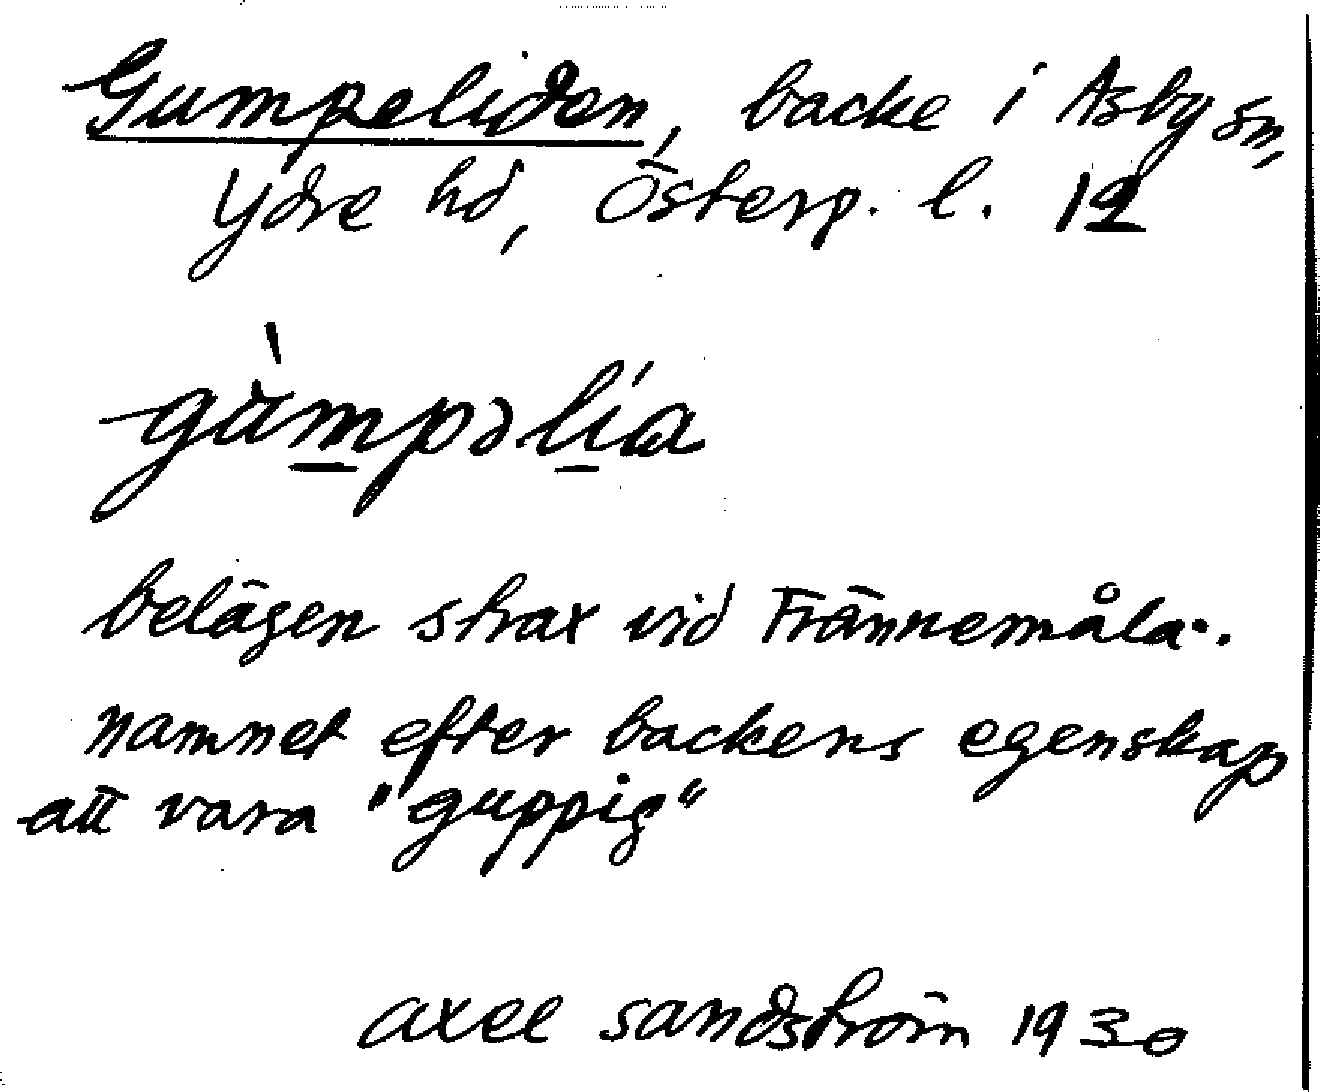 Gumpeliden, backe i Asby sn,
Ydre hd, Österg. l. 19
gùmpəlía
belägen strax vid Frännemåla.
namnet efter backens egenskap
att vara "guppig"
axel sandström 1930